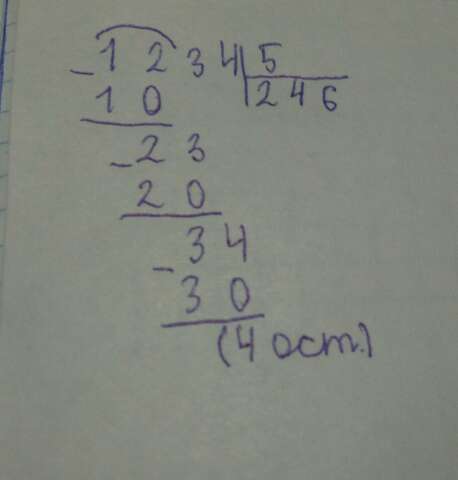 - 1 2 3 4 | 5
1 0 | 2 4 6
- 2 3
2 0
- 3 4
3 0
(4 ост.)